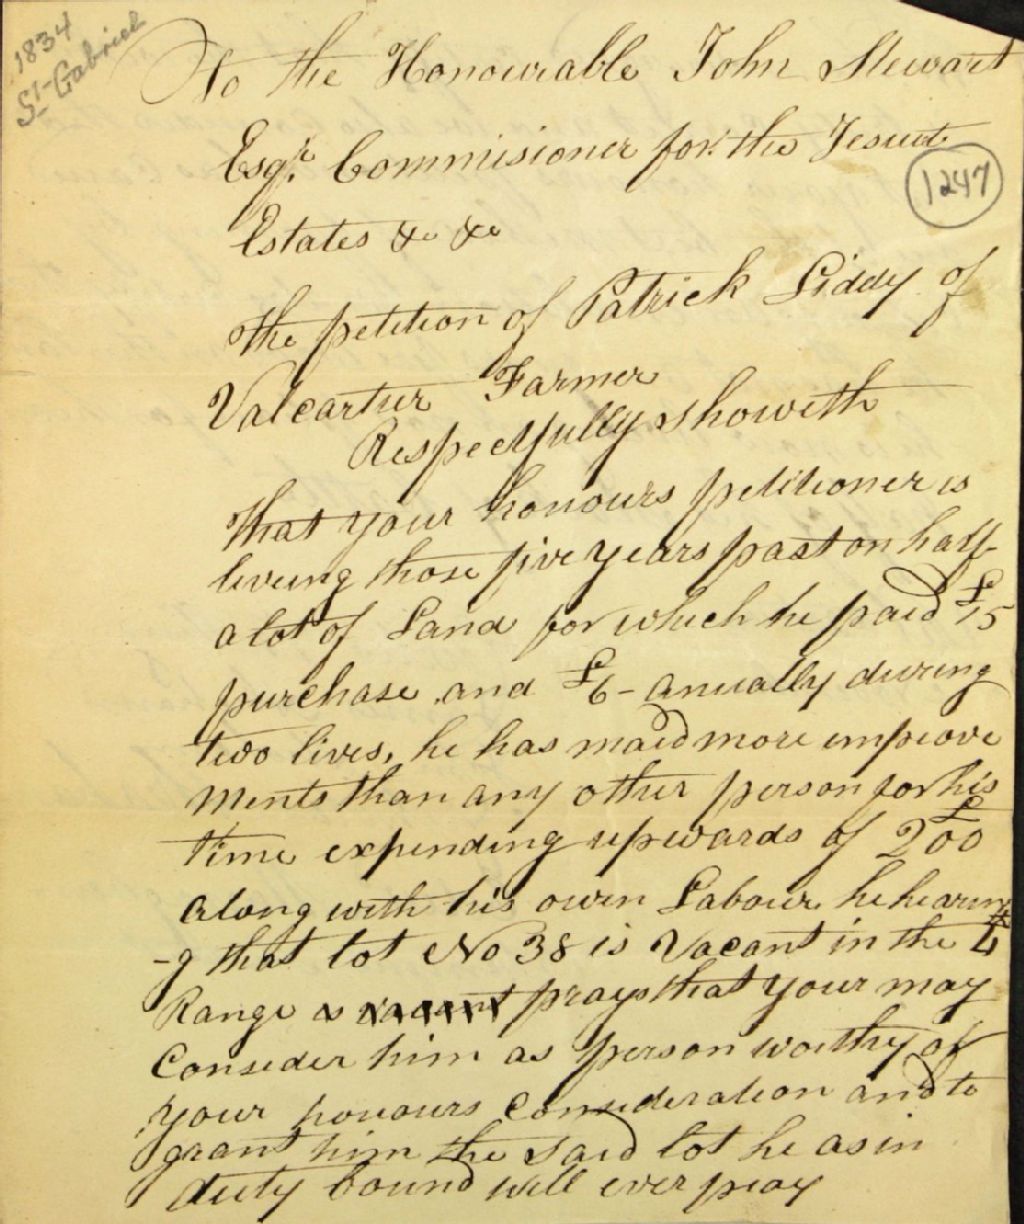 1834
St-Gabriel
To the Honourable John Stewart
Esqr. Commisioner for the Jesuit
1247
Estates &c &c
The petition of Patrick Liddy of
Valcartier Farmer
Respectfully showeth
that your honours petitioner is
liveing those five years past on half
a lot of Land for which he paid £15
purchase and £6 - anually during
two lives, he has maid more improve
ments than any other person for his
time expending upwards of £200
along with his own Labour he hearin
-g that lot No 38 is Vacant in the 4th
Range is vacant prays that your may
Consider him as person worthy of
your honours Consideration and to
grant him the said lot he as in
duty bound will ever pray